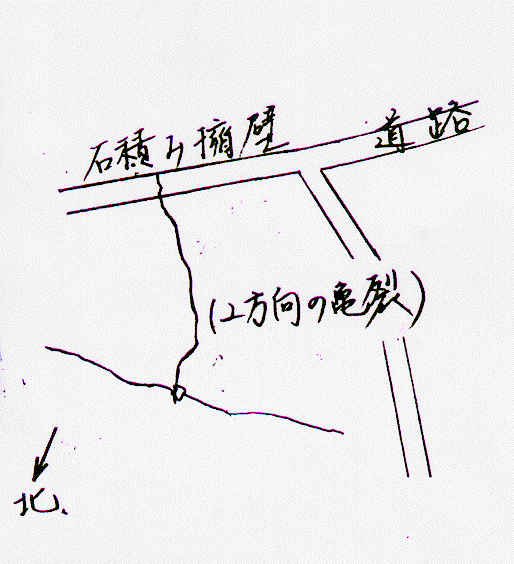 石積み擁壁
道路
(2方向の亀裂)
北、